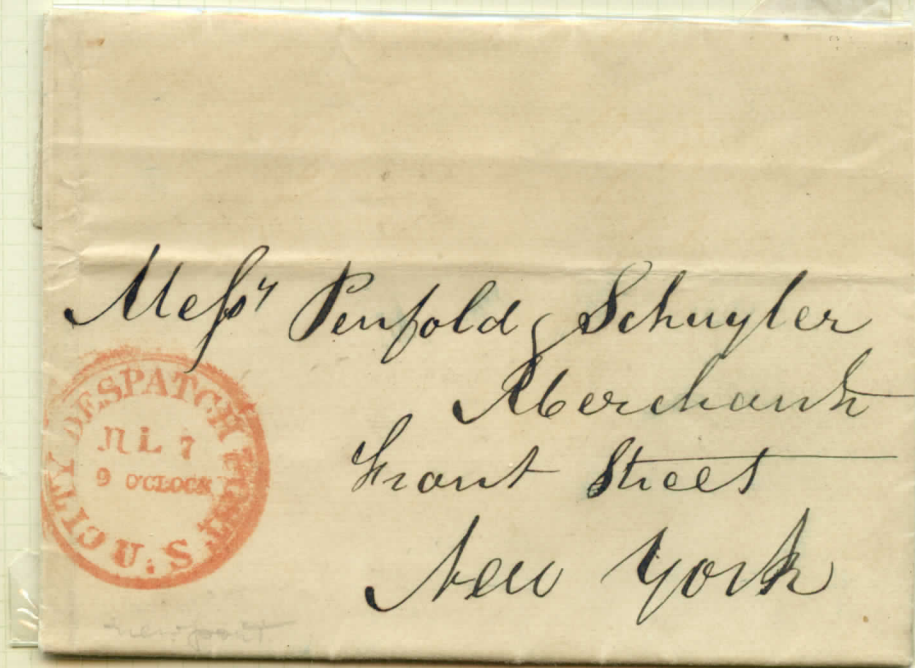 Messrs Penfold & Schuyler
Merchants
Front Street
New York
CITY DESPATCH POST U.S.
JUL 7
9 O'CLOCK
newport